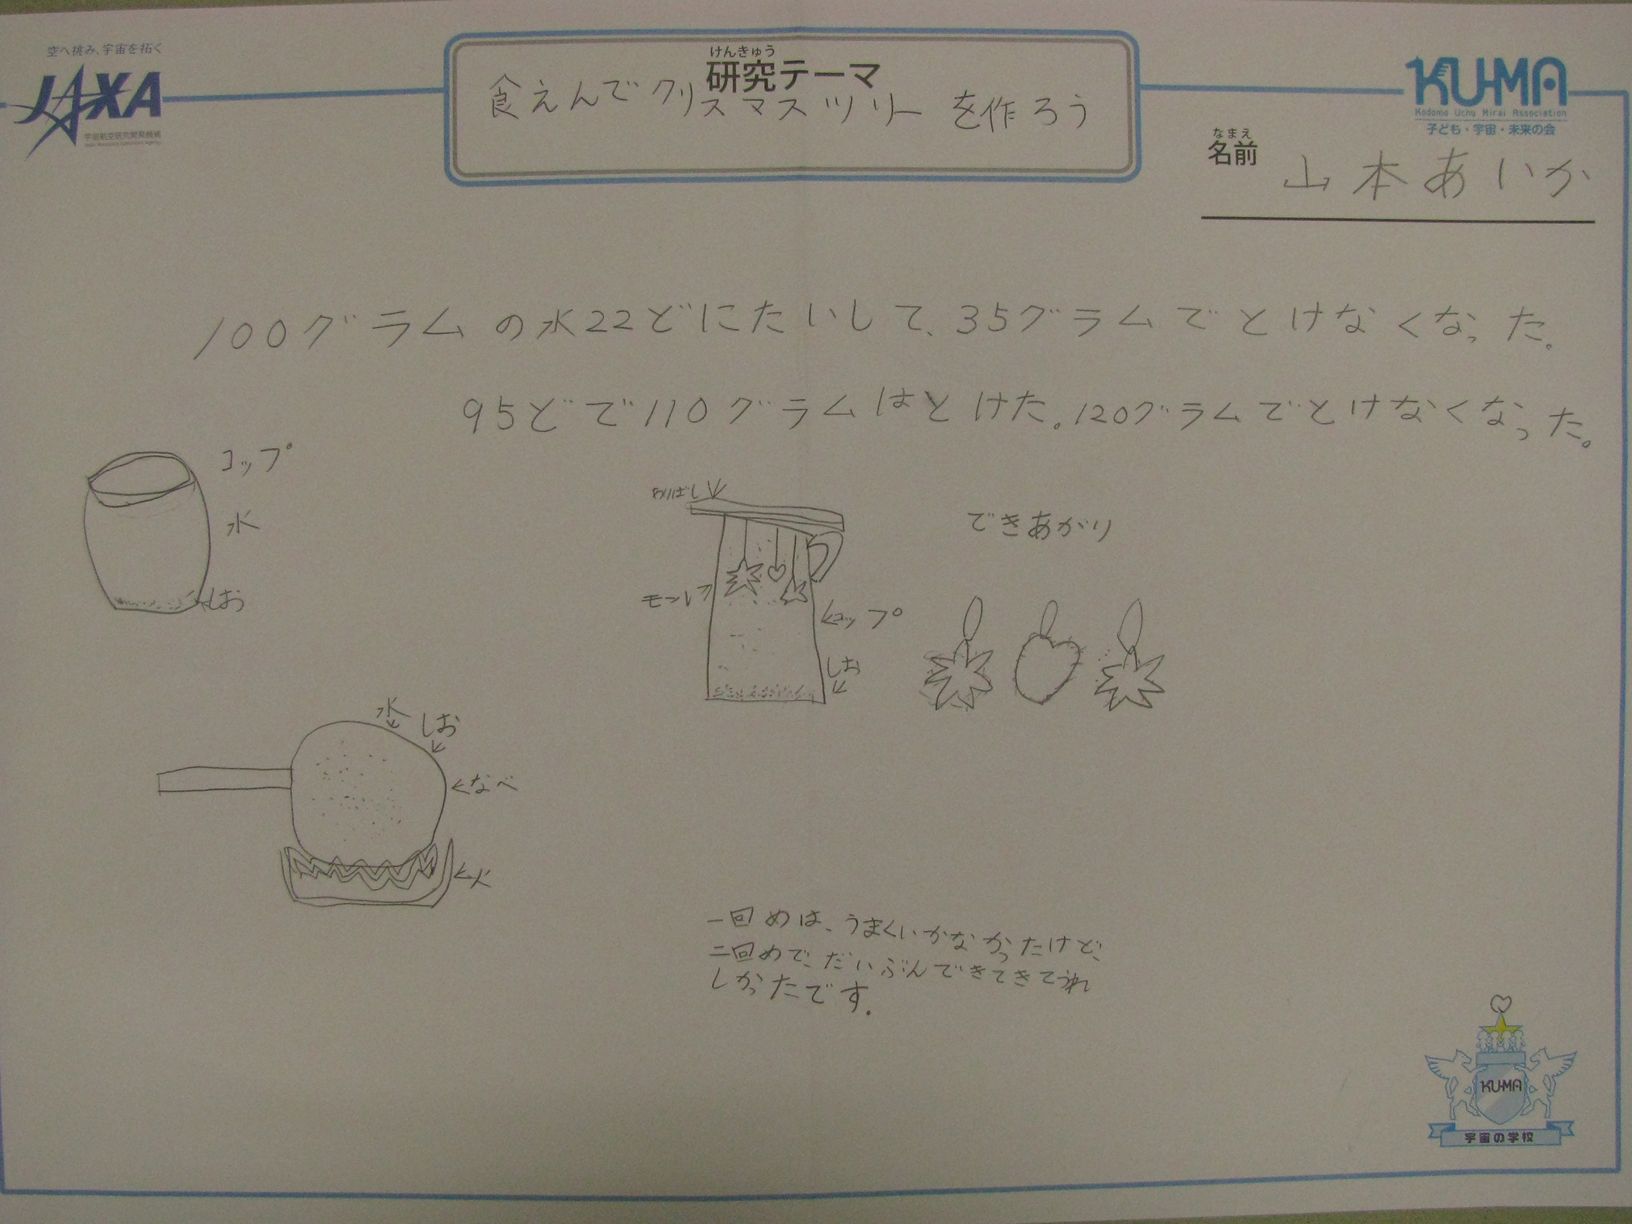 空へ挑み、宇宙を拓く
JAXA
宇宙航空研究開発機構
Japan Aerospace Exploration Agency
けんきゅう
研究テーマ
食えんでクリスマスツリーを作ろう
KU-MA
Kodomo Uchu Mirai Association
子ども・宇宙・未来の会
なまえ
名前
山本あいか
100グラムの水22どにたいして、35グラムでとけなくなった。
95どで110グラムはとけた。120グラムでとけなくなった。
コップ
水
しお
わりばし
モール
コップ
しお
できあがり
水
しお
なべ
火
一回めは、うまくいかなかったけど、
二回めで、だいぶんできてきてうれ
しかったです。
KU-MA
宇宙の学校